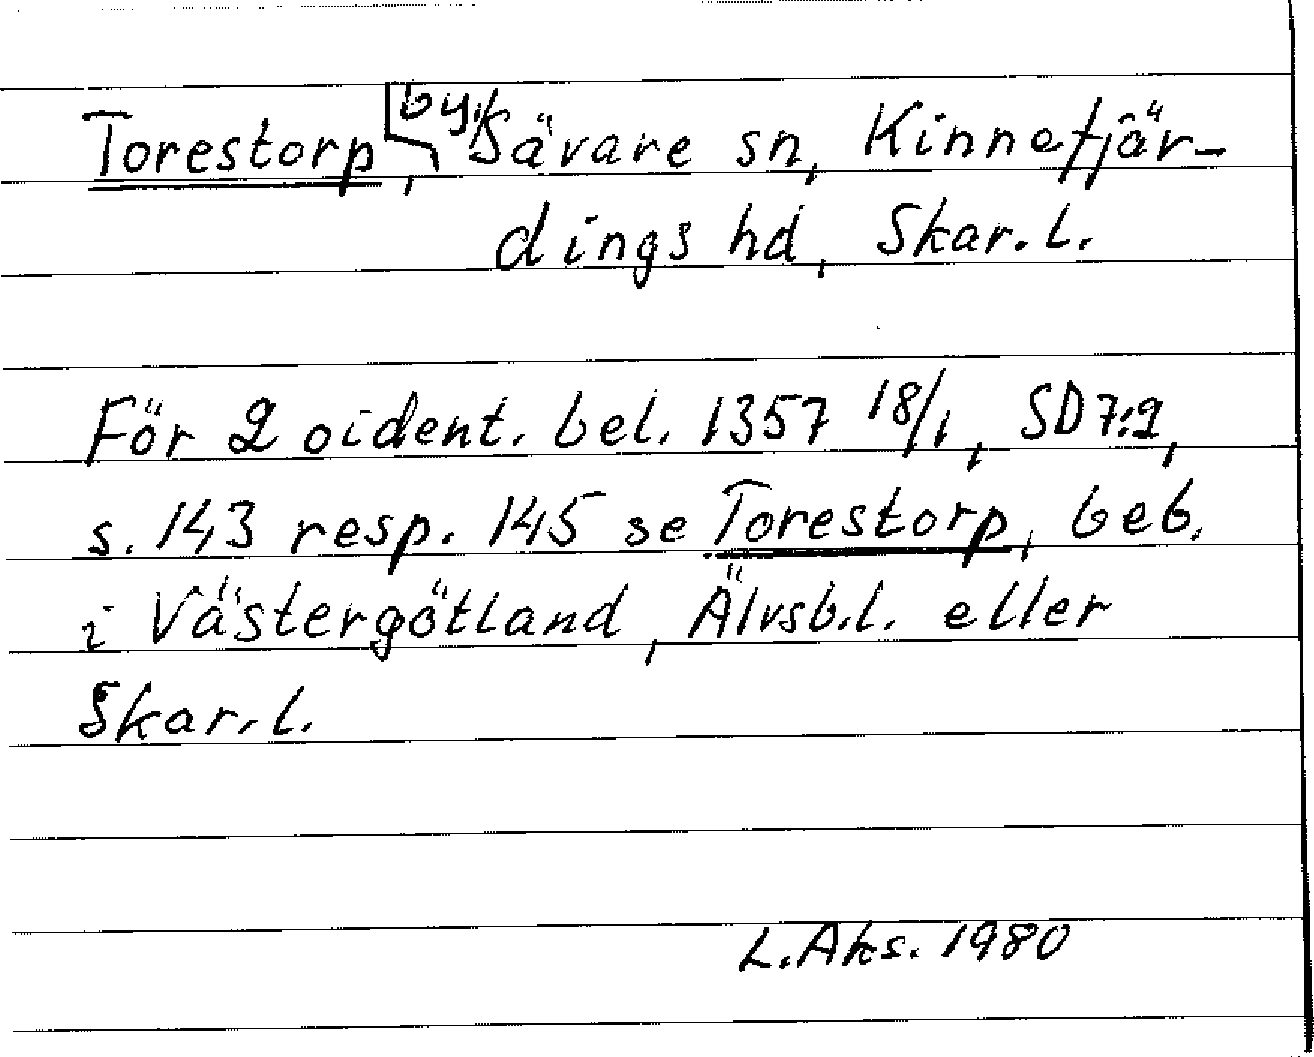 Torestorp, by, Sävare sn, Kinnefjär-
dings hd, Skar. l.
För 2 oident. bel. 1357 18/1, SD 7:1,
s. 143 resp. 145 se Torestorp, beb.
i Västergötland, Älvsb.l. eller
Skar. l.
L. Aks. 1980